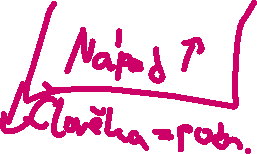 Nápad ↑
Člověka = potr.